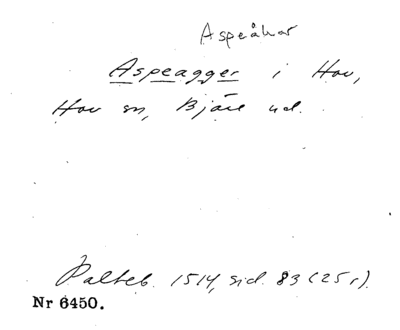 Aspeåkar
Aspeagger i Hov,
Hov sn, Bjäre hd.
Palteb. 1514, sid. 83 (25 r).
Nr 6450.